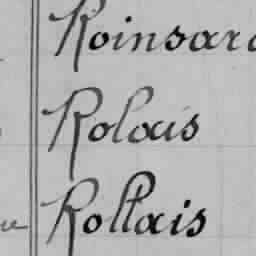 Roinsard
Rolais
Rollais